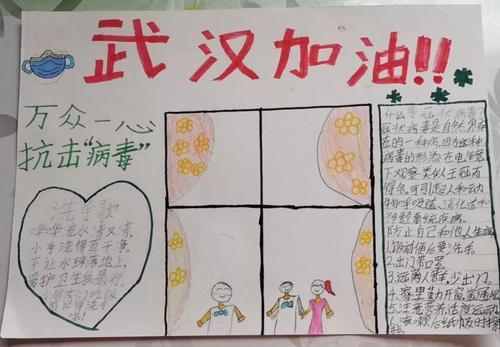 武汉加油!!
万众一心
抗击“病毒”
洗手歌
哗哗流水清又清
小手洗得干干净
不让水珠落地上
爱护卫生我最行
什么是冠状病毒?
冠状病毒是自然界存
在的一种病,因为这种
病毒的形态在电镜
下观察类似王冠而
得名可引起人和动
物呼吸道、消化道和
神经系统疾病。
防止自己和他人生病
1.饭前便后要洗手。
2.出门戴口罩
3.远离人群,少出门。
4.家里勤开窗,常通风
5.注意营养,适度运动